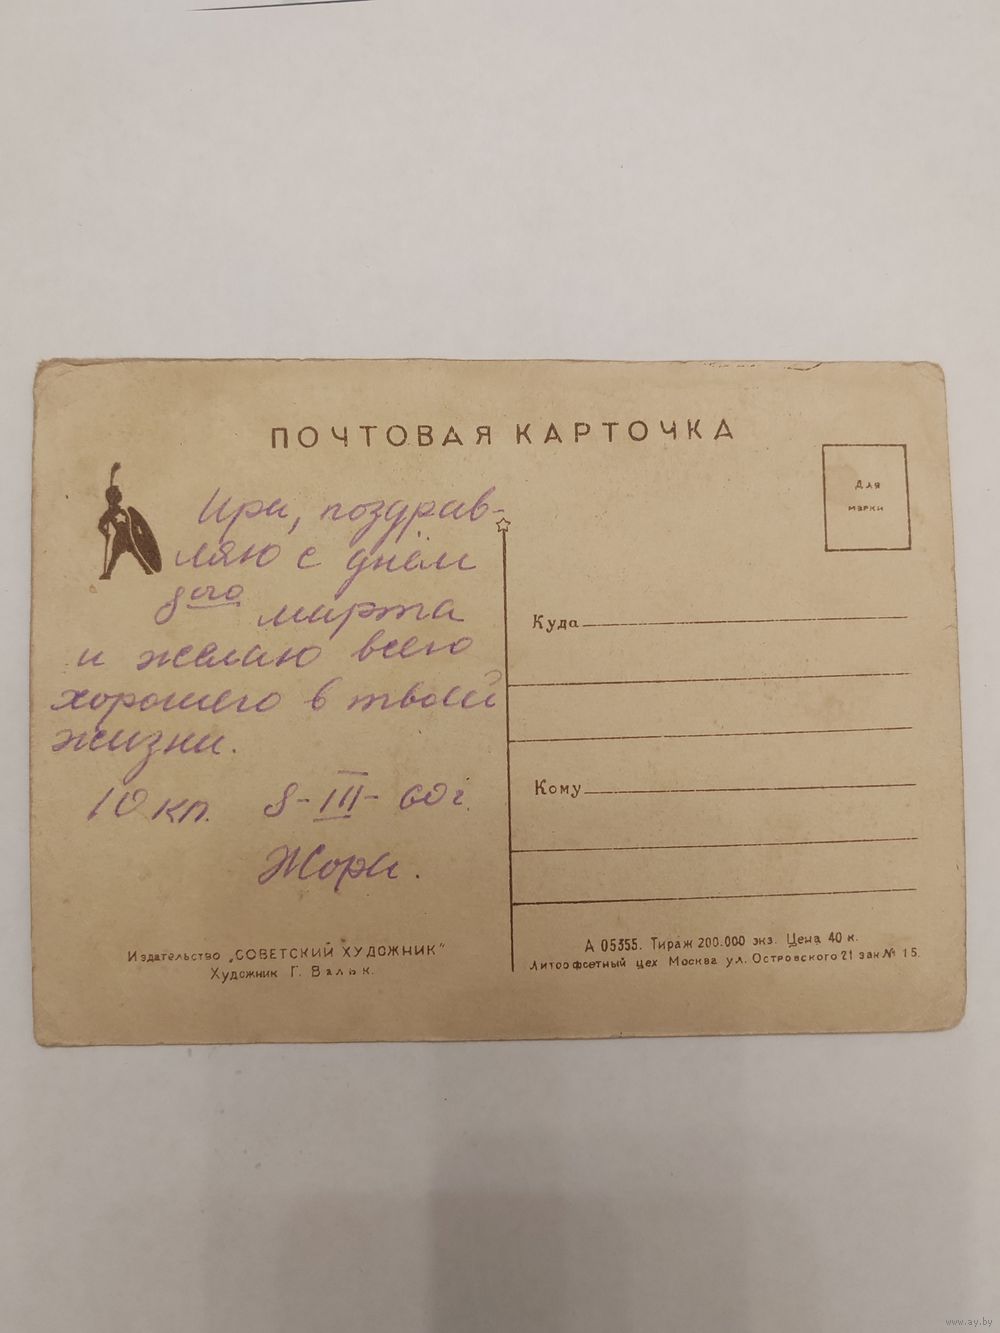 ПОЧТОВАЯ КАРТОЧКА
Для
марки
Ира, поздрав-
ляю с днём
8ого марта
и желаю всего
хорошего в твоей
жизни.
10 кл. 8-III-60г.
Жора.
Куда
Кому
Издательство „СОВЕТСКИЙ ХУДОЖНИК"
Художник Г. Валюк.
А 05355. Тираж 200.000 экз. Цена 40 к.
Литоофсетный цех Москва ул. Островского 21 зак № 15.
www.ay.by